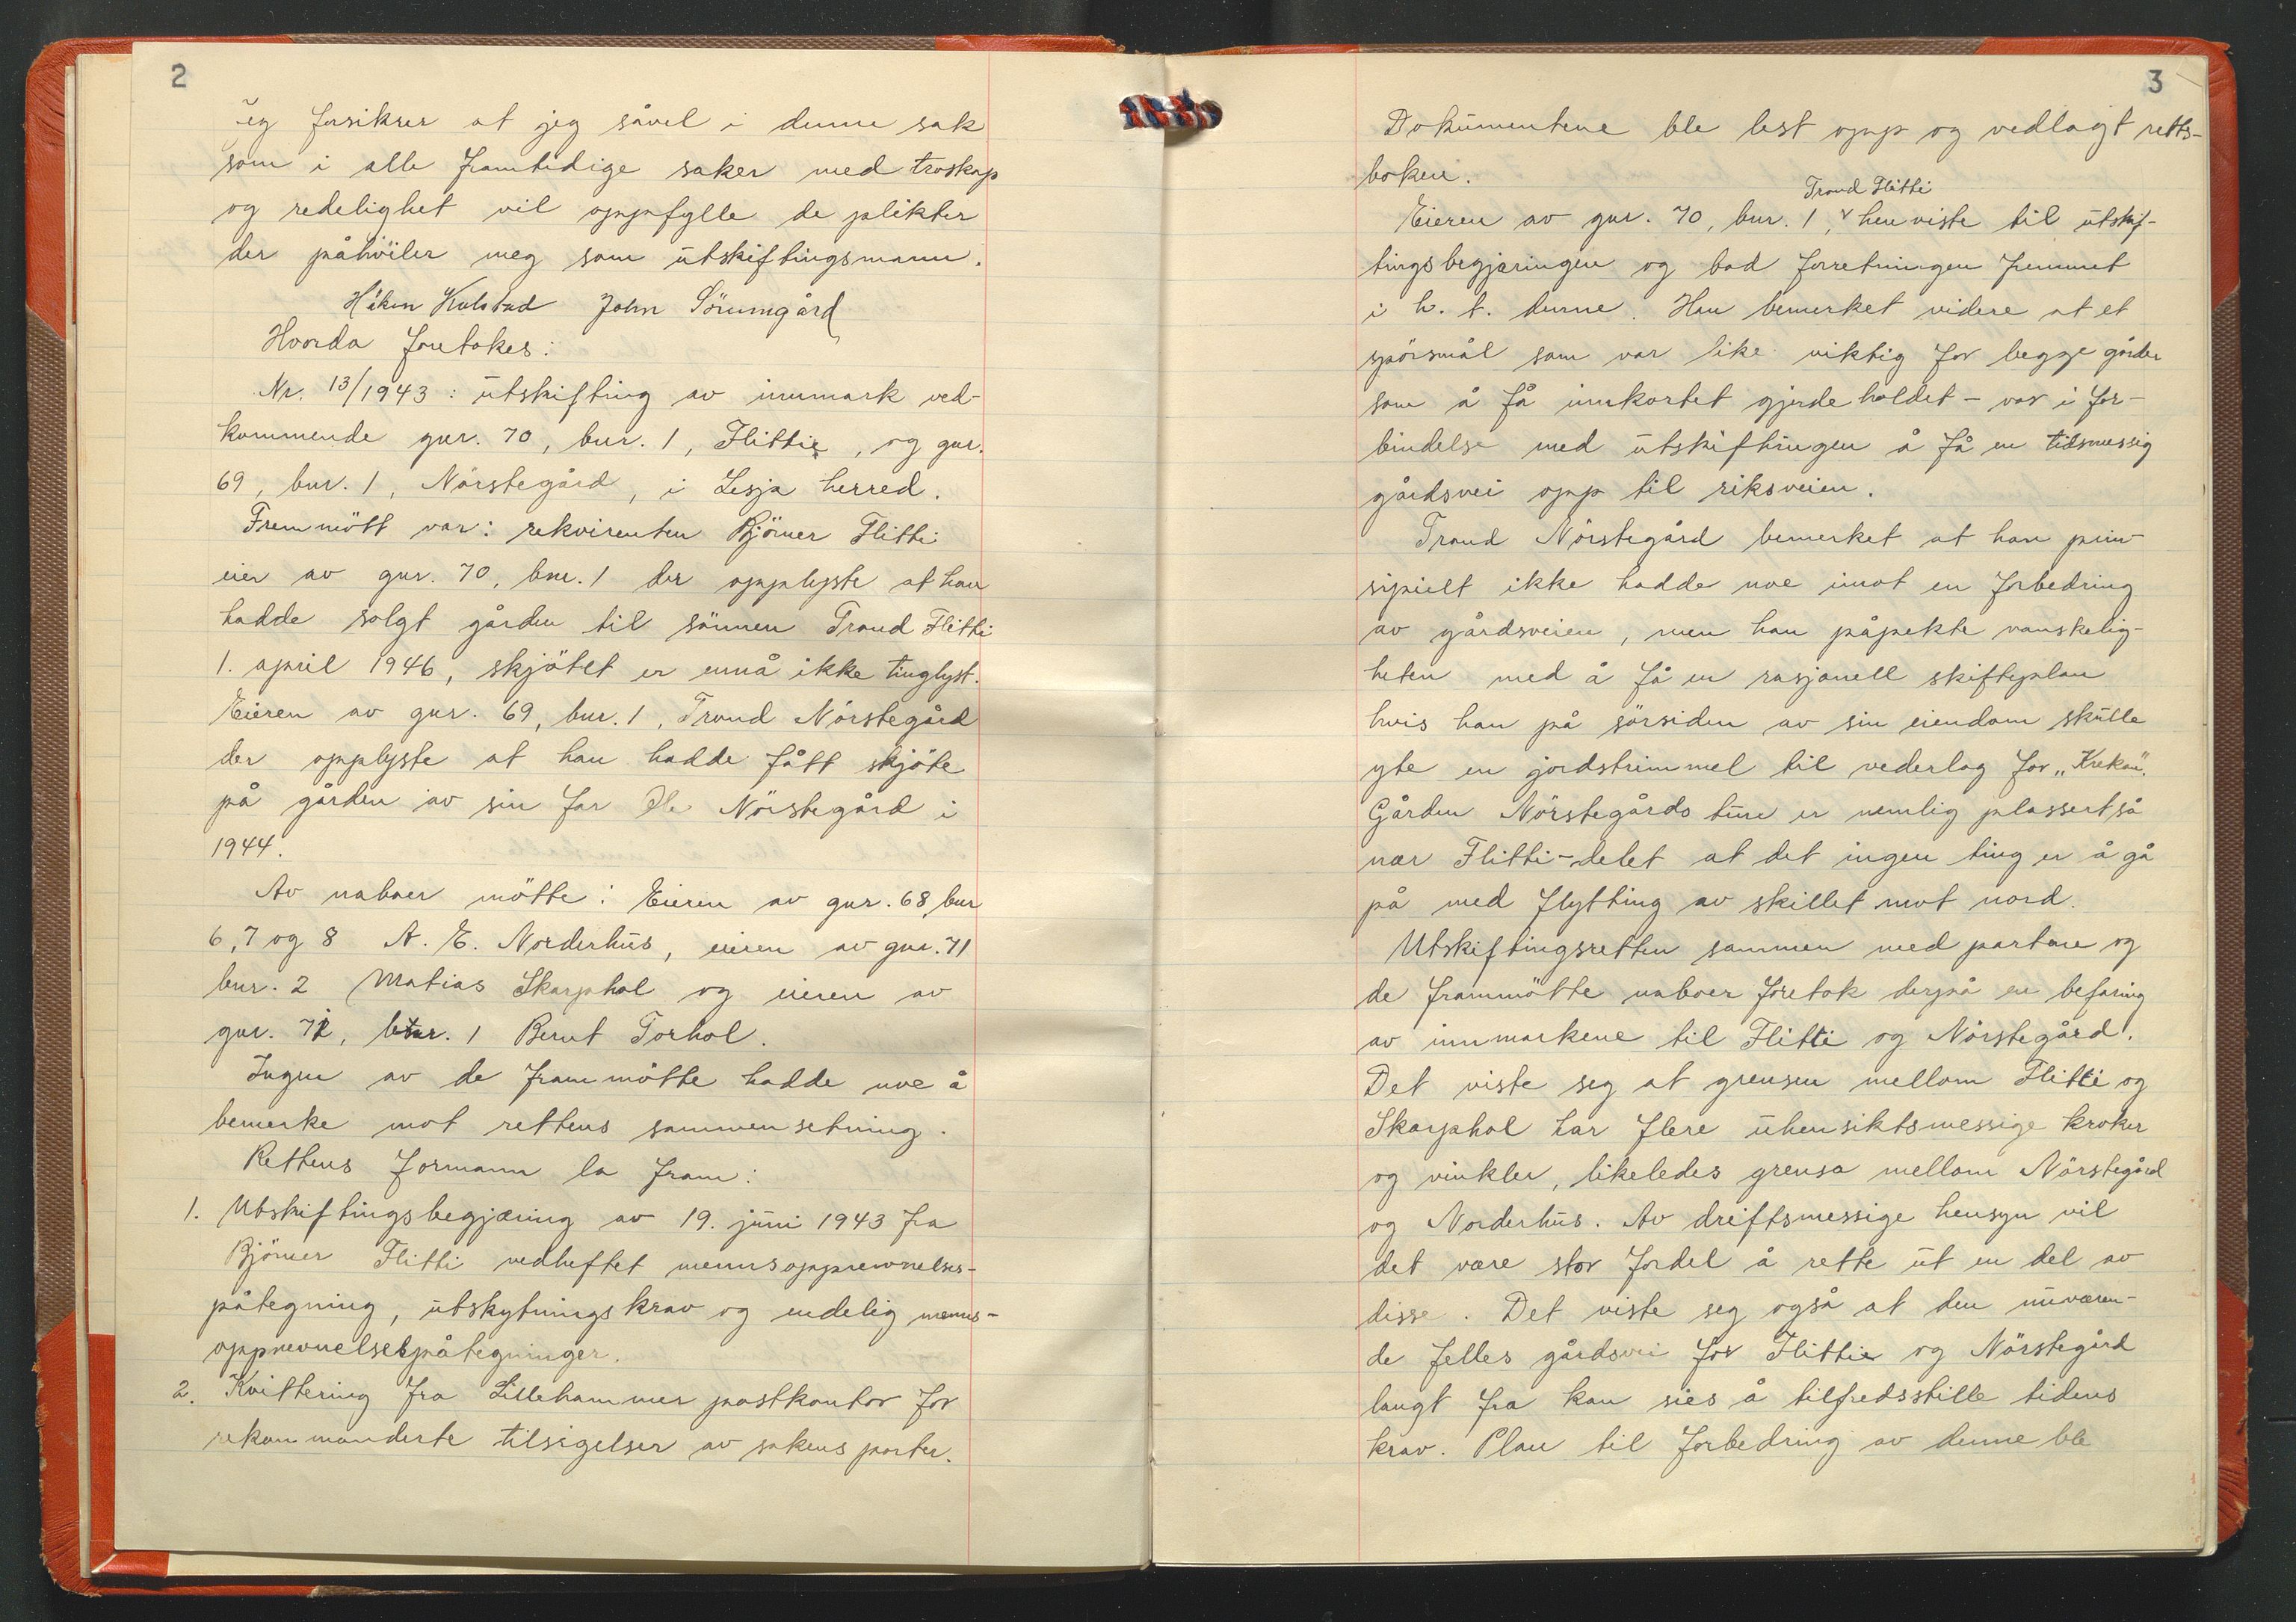 2
Jeg forsikrer at jeg såvel i denne sak
som i alle framtidige saker med troskap
og redelighet vil oppfylle de plikter
der påhviler meg som utskiftingsmann.
Håkon Kolstad John Sörumgård
Hvorda foretokes:
Nr. 13/1943: utskifting av innmark ved-
kommende gnr. 70, bnr. 1, Flittie, og gnr.
69, bnr. 1, Nörstegård, i Lesja herred.
Fremmött var: rekvirenten Björner Flitti
eier av gnr. 70, bnr. 1 der opplyste at han
hadde solgt gården til sönnen Trond Flitti
1. april 1946, skjötet er ennå ikke tinglyst.
Eieren av gnr. 69, bnr. 1, Trond Nörstegård
der opplyste at han hadde fått skjöte
på gården av sin far Ole Nörstegård i
1944.
Av naboer mötte: Eieren av gnr. 68, bnr
6, 7 og 8 A. E. Norderhus, eieren av gnr. 71
bnr. 2 Matias Skarphol og eieren av
gnr. 72, bnr. 1 Bernt Torhol.
Ingen av de frammötte hadde noe å
bemerke mot rettens sammensetning.
Rettens formann la fram:
1. Utskiftingsbegjæring av 19. juni 1943 fra
Björner Flitti vedheftet mennsoppnevnelses-
påtegning, utskytningskrav og endelig menns-
oppnevnelsespåtegninger.
2. Kvittering fra Lillehammer postkontor for
rekommanderte tilsigelser av sakens parter.
3
Dokumentene ble lest opp og vedlagt retts-
boken.
Trond Flitti
Eieren av gnr. 70, bnr. 1, v henviste til utskif-
tingsbegjæringen og bad forretningen fremmet
i h. t. denne. Han bemerket videre at et
spörsmål som var like viktig for begge gårder
som å få innkortet gjerdeholdet – var i for-
bindelse med utskiftningen å få en tidsmessig
gårdsvei opp til riksveien.
Trond Nörstegård bemerket at han prin-
sipielt ikke hadde noe imot en forbedring
av gårdsveien, men han påpekte vanskelig-
heten med å få en rasjonell skifteplan
hvis han på sörsiden av sin eiendom skulle
yte en jordstrimmel til vederlag for „Krekan".
Gården Nörstegårds tun er nemlig plassert så
nær Flitti-delet at det ingen ting er å gå
på med flytting av skillet mot nord.
Utskiftingsretten sammen med partene og
de frammötte naboer foretok derpå en befaring
av innmarkene til Flitti og Nörstegård.
Det viste seg at grensen mellom Flitti og
Skarphol har flere uhensiktsmessige kroker
og vinkler, likeledes grensa mellom Nörstegård
og Norderhus. Av driftsmessige hensyn vil
det være stor fordel å rette ut en del av
disse. Det viste seg også at den nuværen-
de felles gårdsvei for Flittie og Nörstegård
langt fra kan sies å tilfredsstille tidens
krav. Plan til forbedring av denne ble